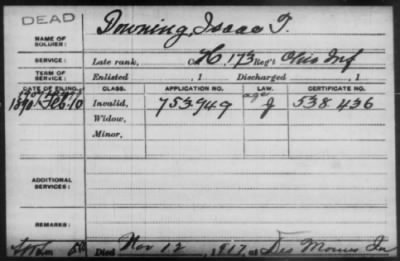 DEAD
NAME OF SOLDIER: Downing, Isaac T.
SERVICE: Late rank, Co. H, 173 Reg't Ohio Inf
TERM OF SERVICE: Enlisted , 1 Discharged , 1
DATE OF FILING. CLASS. APPLICATION NO. LAW. CERTIFICATE NO.
age
1890 Feb. 10 Invalid, 753949 J 538436
Widow,
Minor,
ADDITIONAL SERVICES:
REMARKS:
Died Nov 12, 1917, at Des Moines Ia